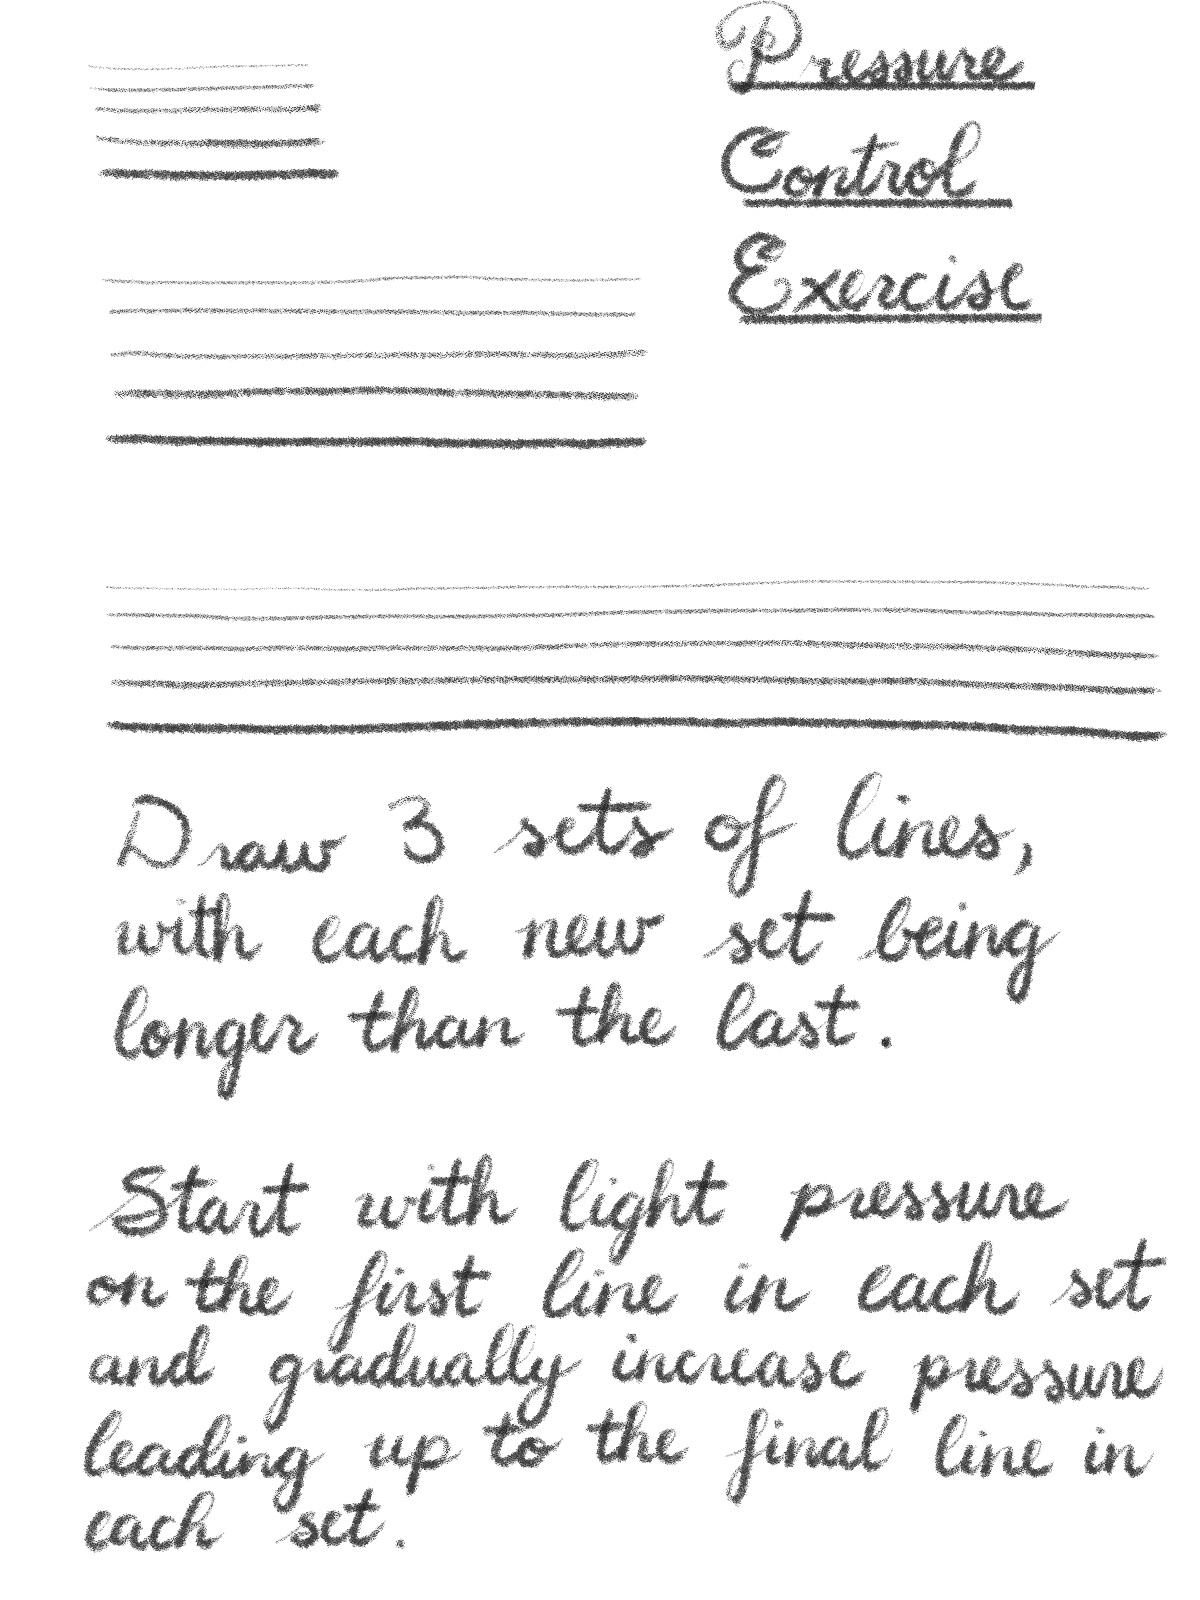 Pressure
Control
Exercise
Draw 3 sets of lines,
with each new set being
longer than the last.
Start with light pressure
on the first line in each set
and gradually increase pressure
leading up to the final line in
each set.